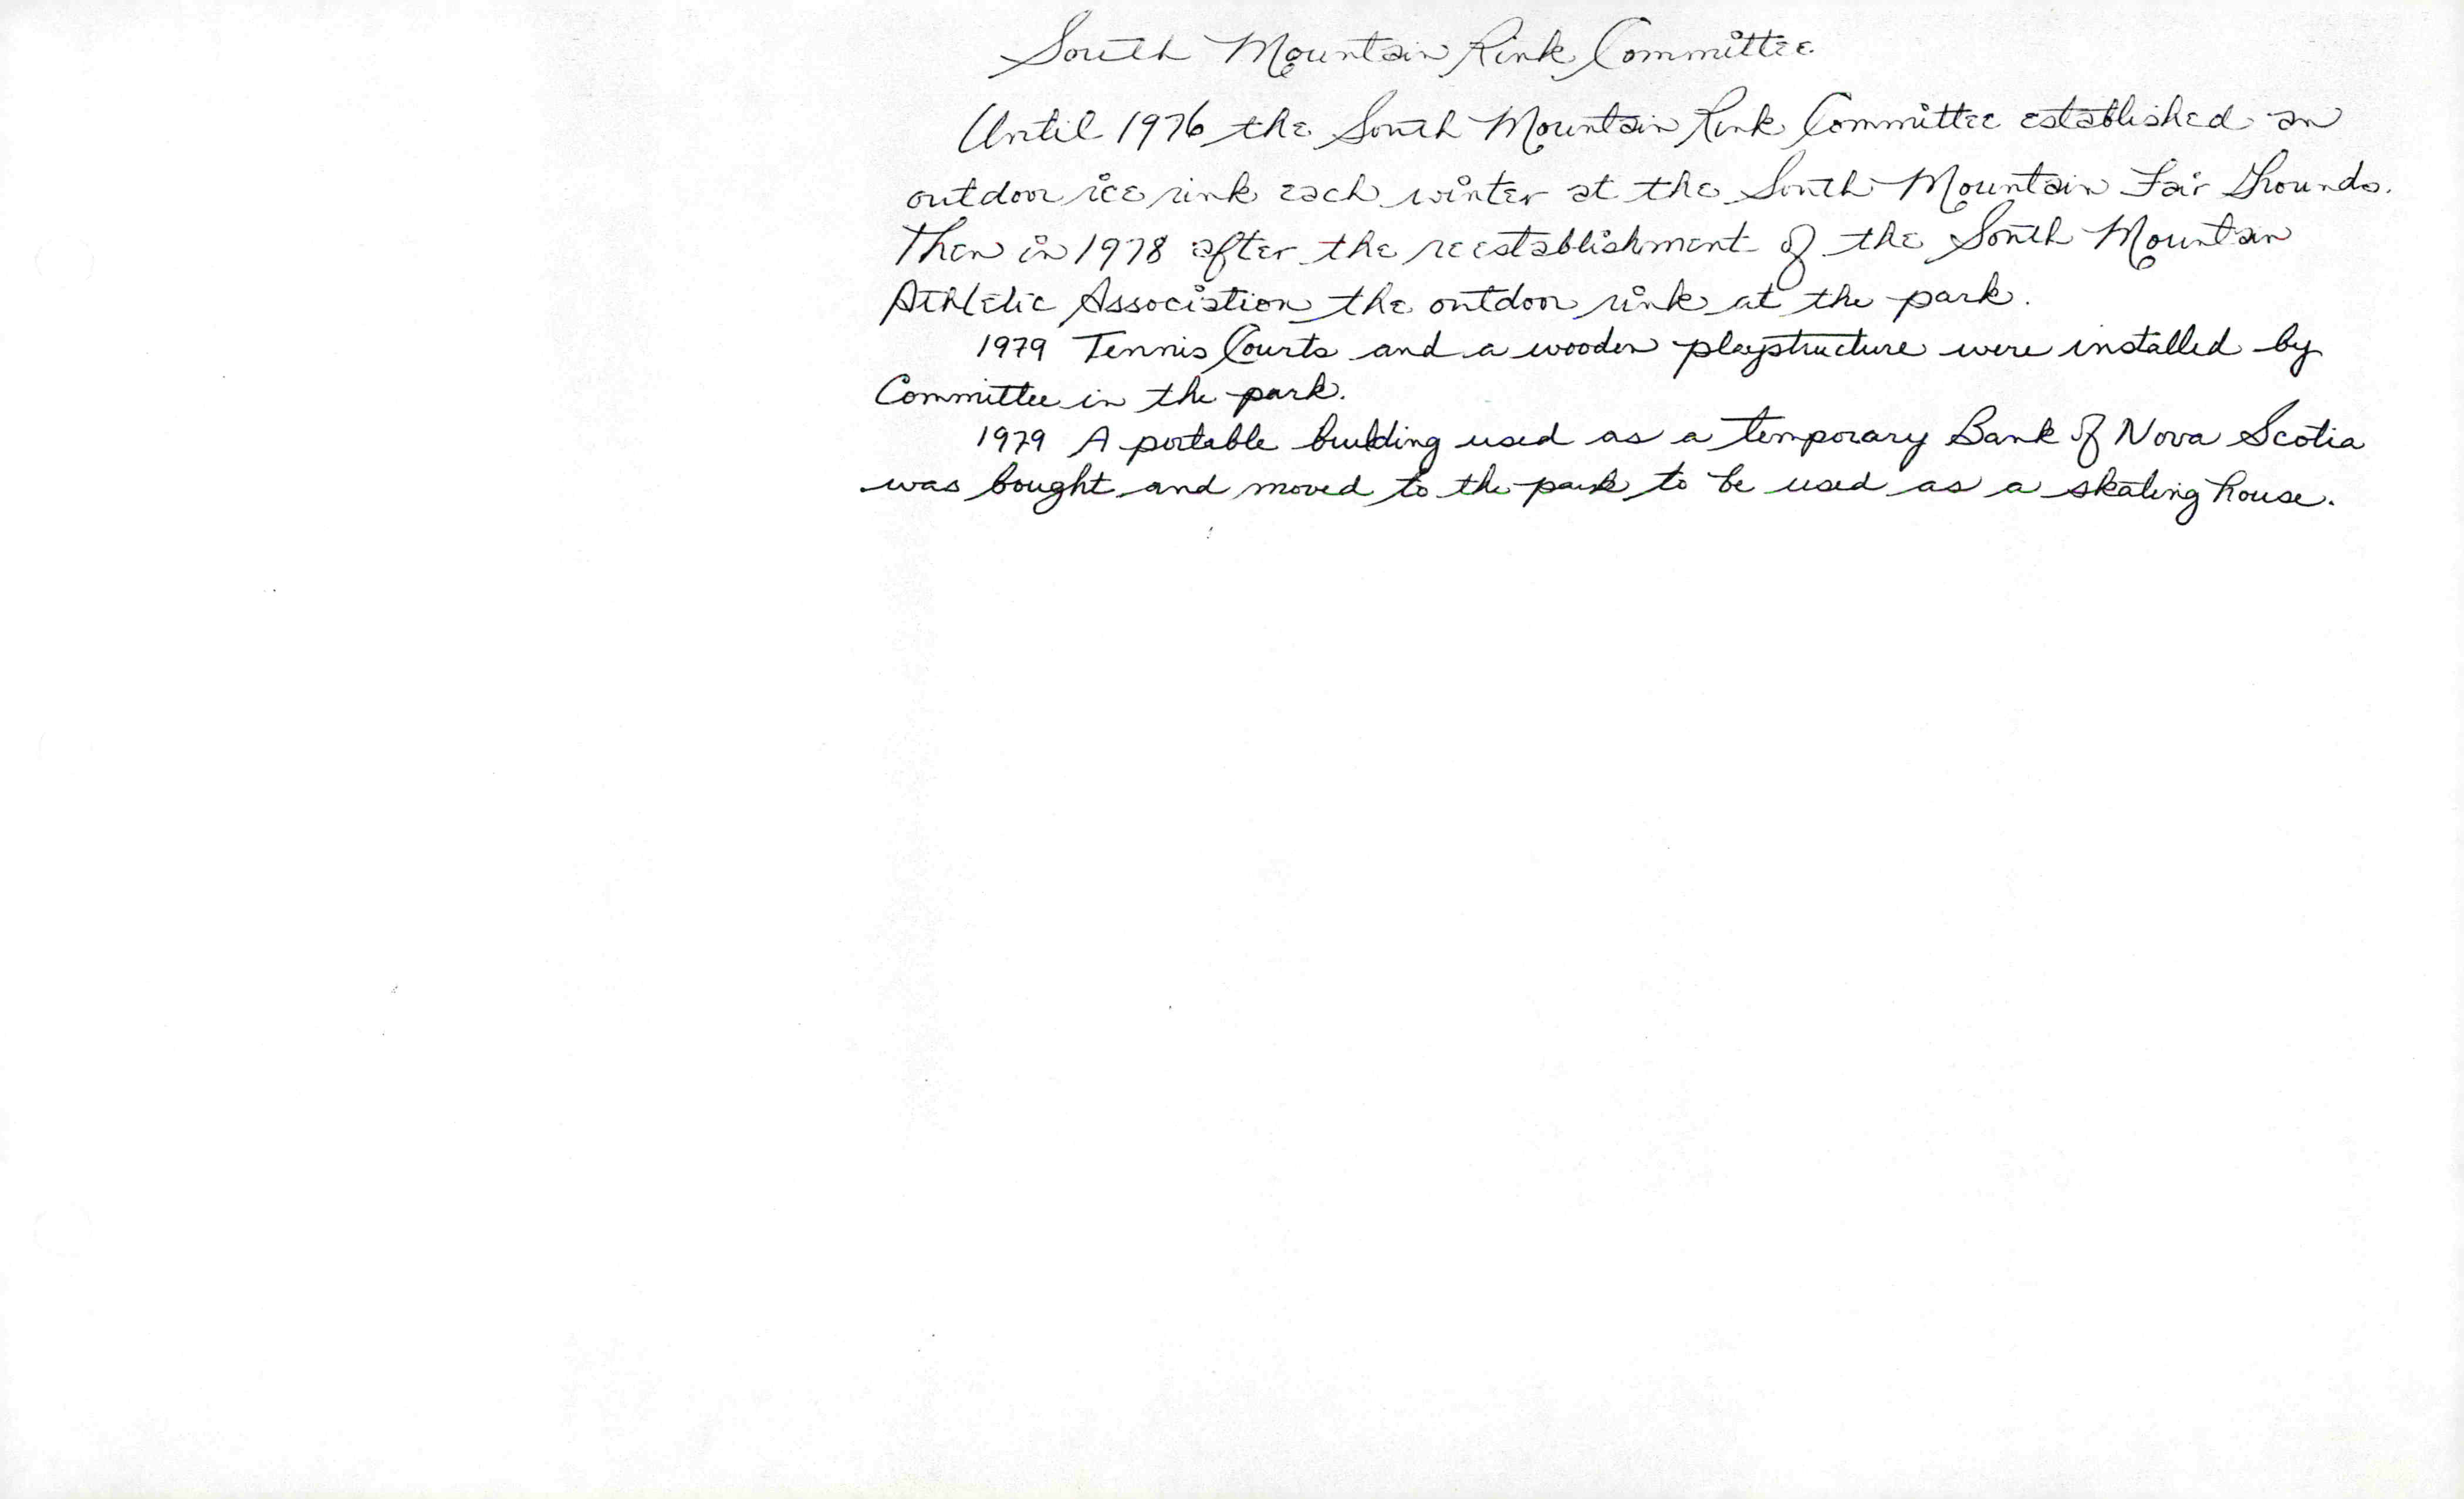 South Mountain Rink Committee
Until 1976 the South Mountain Rink Committee established an
outdoor ice rink each winter at the South Mountain Fair Grounds.
Then in 1978 after the reestablishment of the South Mountain
Athletic Association the outdoor rink at the park.
1979 Tennis Courts and a wooden playstructure were installed by
Committee in the park.
1979 A portable building used as a temporary Bank of Nova Scotia
was bought and moved to the park to be used as a skating house.